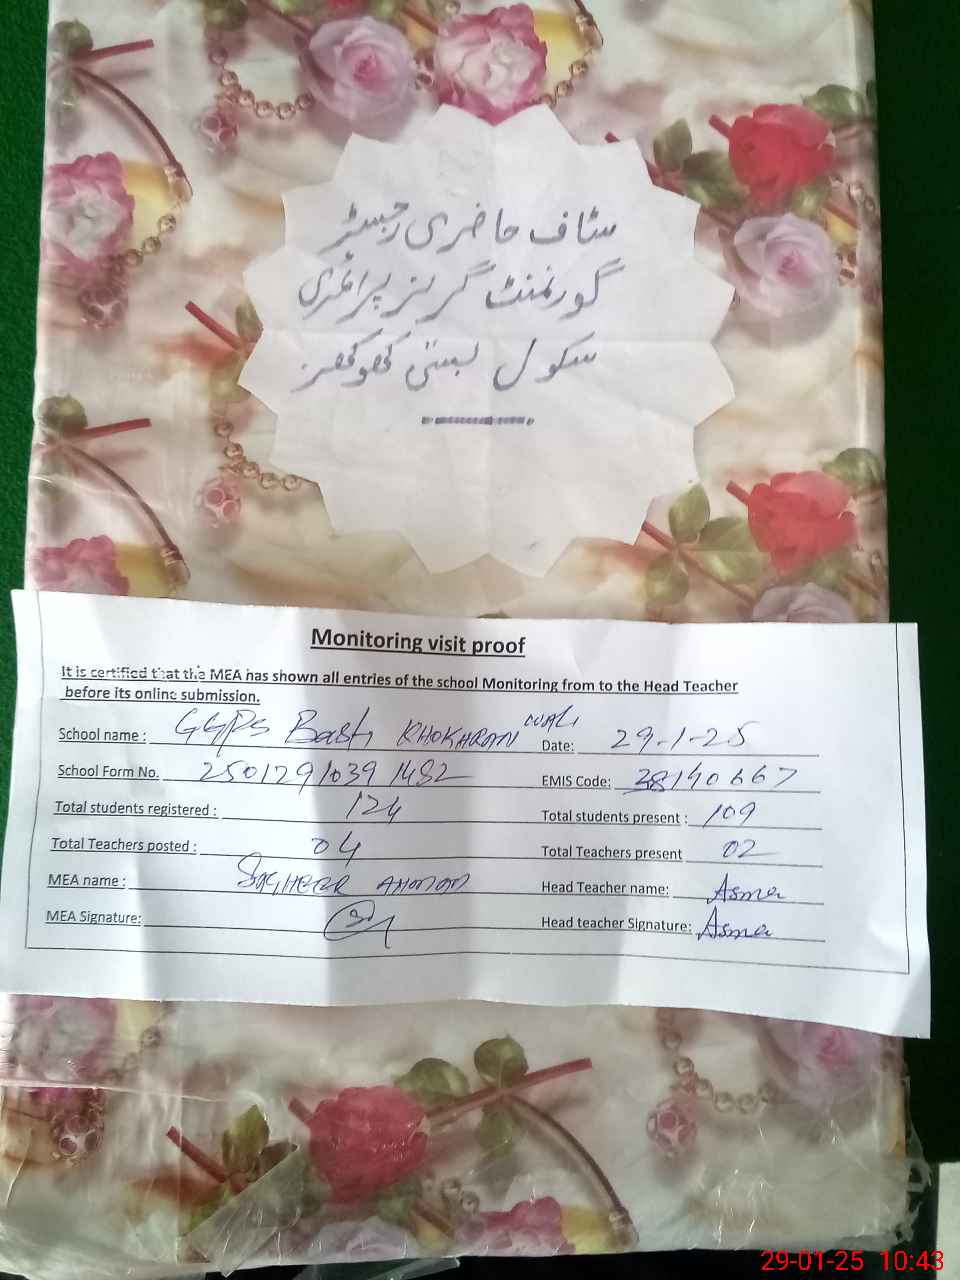 سٹاف حاضری رجسٹر
گورنمنٹ گرلز پرائمری
سکول بستی کھوکھرز
Monitoring visit proof
It is certified that the MEA has shown all entries of the school Monitoring from to the Head Teacher
before its online submission.
School name : GGPS Basti KHOKHRAN WALI Date: 29-1-25
School Form No. 25012910391482 EMIS Code: 38140667
Total students registered : 124 Total students present : 109
Total Teachers posted : 04 Total Teachers present 02
MEA name : SAGHEER AHMAD Head Teacher name: Asma
MEA Signature: Head teacher Signature: Asma
29-01-25 10:43